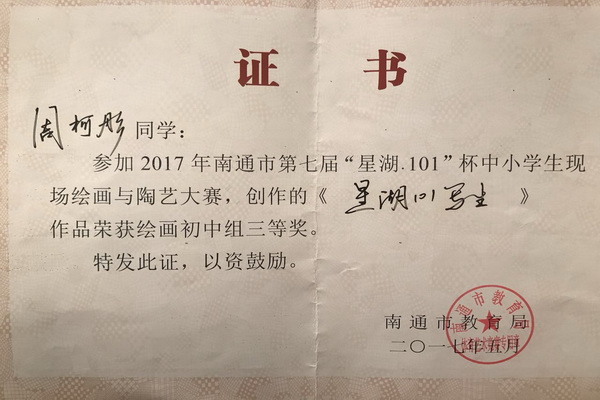 证书
周柯彤 同学：
参加 2017 年南通市第七届“星湖.101”杯中小学生现
场绘画与陶艺大赛，创作的《 星湖101写生 》
作品荣获绘画初中组三等奖。
特发此证，以资鼓励。
南通市教育局
二〇一七年五月
南通市教育局